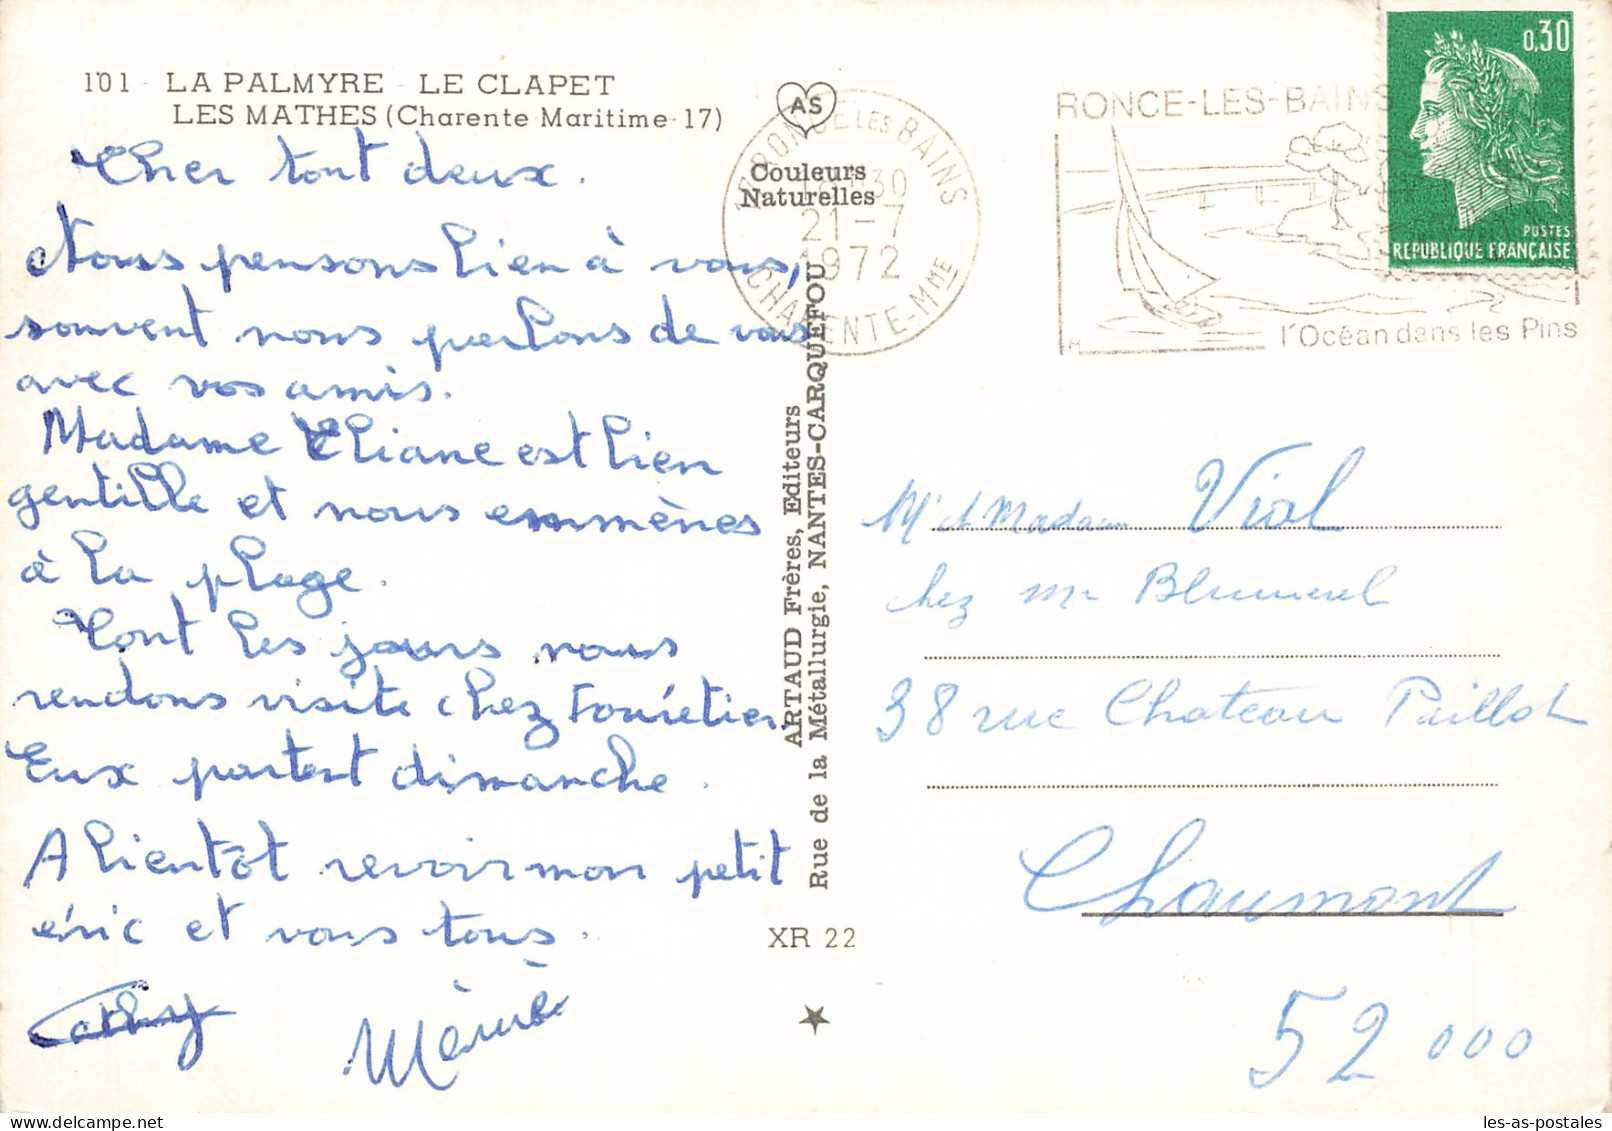 101 - LA PALMYRE - LE CLAPET
LES MATHES (Charente Maritime-17)
Cher tout deux.
Nous pensons bien à vous,
souvent nous parlons de vous
avec vos amis.
Madame Eliane est bien
gentille et nous emmènes
à la plage.
Tout les jours nous
rendons visite chez
Eux partent dimanche.
A bientôt revoir mon petit
éric et vous tous.
Cathy
Mémé
AS
Couleurs
Naturelles
ARTAUD Frères, Editeurs
Rue de la Métallurgie, NANTES-CARQUEFOU
XR 22
17 RONCE LES BAINS
18H30
21-7
1972
CHARENTE-MME
RONCE-LES-BAINS
l'Océan dans les Pins
M
0,30
POSTES
REPUBLIQUE FRANÇAISE
Mr et Madame Vial
chez mr
38 rue Chateau Paillot
Chaumont
52 000
les-as-postales